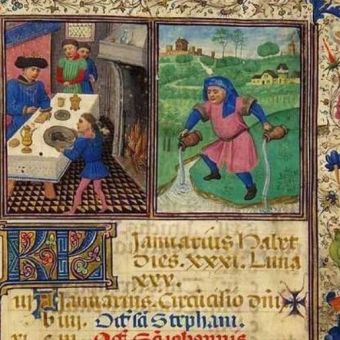 KL Januarius Habet
Dies. xxxi. Luna
xxx.
iii A Januarius. Circulatio dni
b iiii. Oct̄ sc̄i Stephani.
xi c iii. Oct̄ S. Johannis